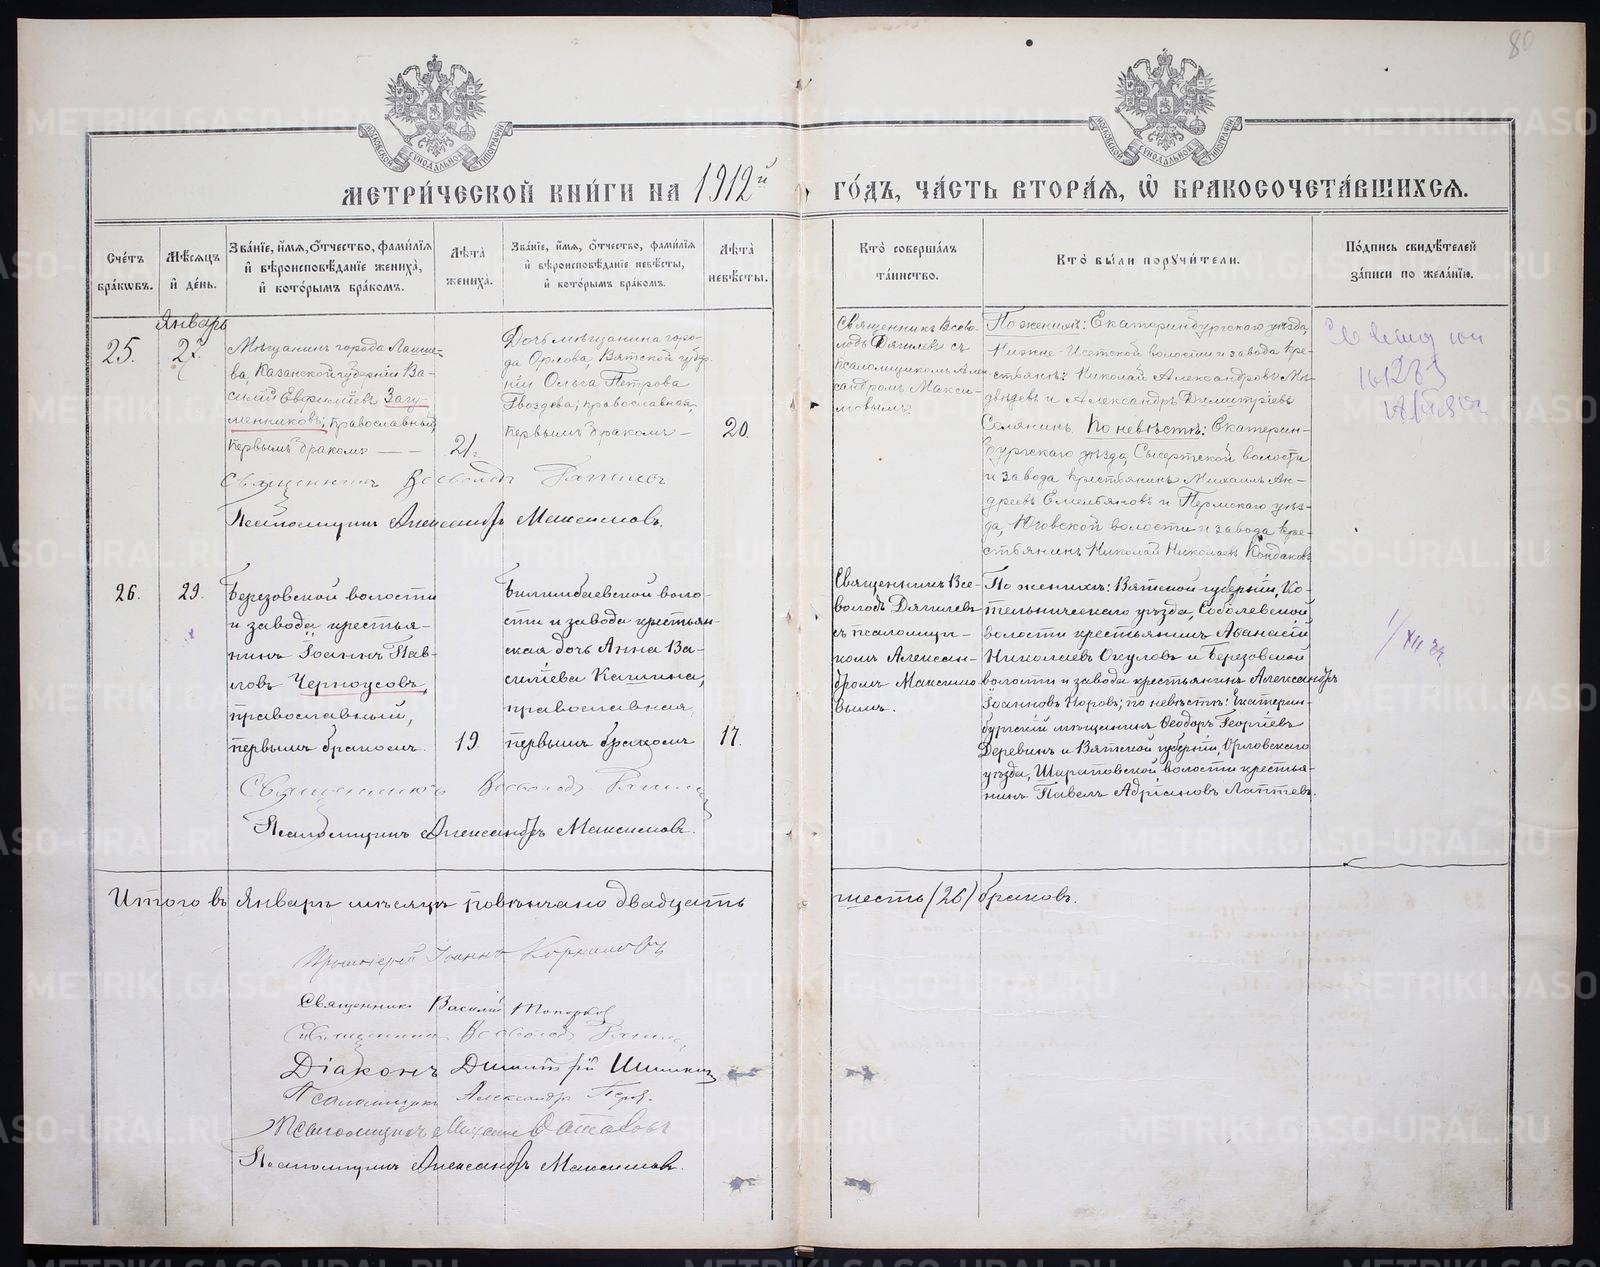 80
МОСКОВСКОЙ СѴНОДАЛЬНОЙ ТИПОГРАФІИ
МОСКОВСКОЙ СѴНОДАЛЬНОЙ ТИПОГРАФІИ
МЕТРИ́ЧЕСКОЙ КНИ́ГИ НА 1912й ГО́ДЪ, ЧА́СТЬ ВТОРА́Ѧ, Ѽ БРАКОСОЧЕТА́ВШИХСѦ.
Сче́тъ бра́кѡвъ.
Мѣ́сѧцъ и҆ де́нь.
Зва́нїе, и҆́мѧ, ѻ҆́тчество, фами́лїѧ и҆ вѣроисповѣ́данїе жениха̀, и҆ кото́рымъ бра́комъ.
Лѣ́та жениха̀.
Зва́нїе, и҆́мѧ, ѻ҆́тчество, фами́лїѧ и҆ вѣроисповѣ́данїе невѣ́сты, и҆ кото́рымъ бра́комъ.
Лѣ́та невѣ́сты.
Кто̀ соверша́лъ та́инство.
Кто̀ бы́ли поручи́тели.
По́дпись свидѣ́телей за́писи по жела́нїю.
Январь
25.
Мѣщанинъ города Лаише-
ва, Казанской губерніи Ва-
силій Евфиміевъ Загу-
менниковъ; православный,
первымъ бракомъ
21.
Дочь мѣщанина горо-
да Орлова, Вятской губер-
ніи Ольга Петрова
Гвоздева; православная,
первымъ бракомъ
20.
Священникъ Всево-
лодъ Дягилевъ съ
псаломщикомъ Алек-
сандромъ Макси-
мовымъ
По женихѣ: Екатеринбургскаго уѣзда,
Нижне-Исетской волости и завода кре-
стьяне: Николай Александровъ Ме-
двѣдевъ и Александръ Димитріевъ
Селянинъ. По невѣстѣ: Екатерин-
бургскаго уѣзда, Сысертской волости
и завода крестьянинъ Михаилъ Ан-
дреевъ Емельяновъ и Пермскаго уѣз-
да, Юговской волости и завода кре-
стьянинъ Николай Николаевъ Кондаковъ
Священникъ Всеволодъ Дягилевъ
Псаломщикъ Александръ Максимовъ.
26.
29.
Березовской волости
и завода крестья-
нинъ Іоаннъ Пав-
ловъ Черноусовъ,
православный,
первымъ бракомъ.
19.
Билимбаевской воло-
сти и завода крестьян-
ская дочь Анна Ва-
силіева Капина,
православная,
первымъ бракомъ
17.
Священникъ Все-
володъ Дягилевъ
съ псаломщи-
комъ Алексан-
дромъ Максимо-
вымъ.
По женихѣ: Вятской губерніи, Ко-
тельническаго уѣзда, Соболевской
волости крестьянинъ Аѳанасій
Николаевъ Окуловъ и Березовской
волости и завода крестьянинъ Александръ
Іоанновъ Коровъ; по невѣстѣ: Екатерин-
бургскій мѣщанинъ Ѳеодоръ Георгіевъ
Деревинъ и Вятской губерніи, Орловскаго
уѣзда, Шараповской волости крестья-
нинъ Павелъ Адріановъ Лаптевъ.
Священникъ Всеволодъ Дягилевъ
Псаломщикъ Александръ Максимовъ.
Итого въ Январѣ мѣсяцѣ повѣнчано двадцать шесть (26) браковъ.
Протоіерей Іоаннъ
Священникъ Василій Топорковъ
Священникъ Всеволодъ Дягилевъ
Діаконъ Димитрій Шишкинъ
Псаломщикъ Александръ
Псаломщикъ Михаилъ
Псаломщикъ Александръ Максимовъ.
METRIKI.GASO-URAL.RU